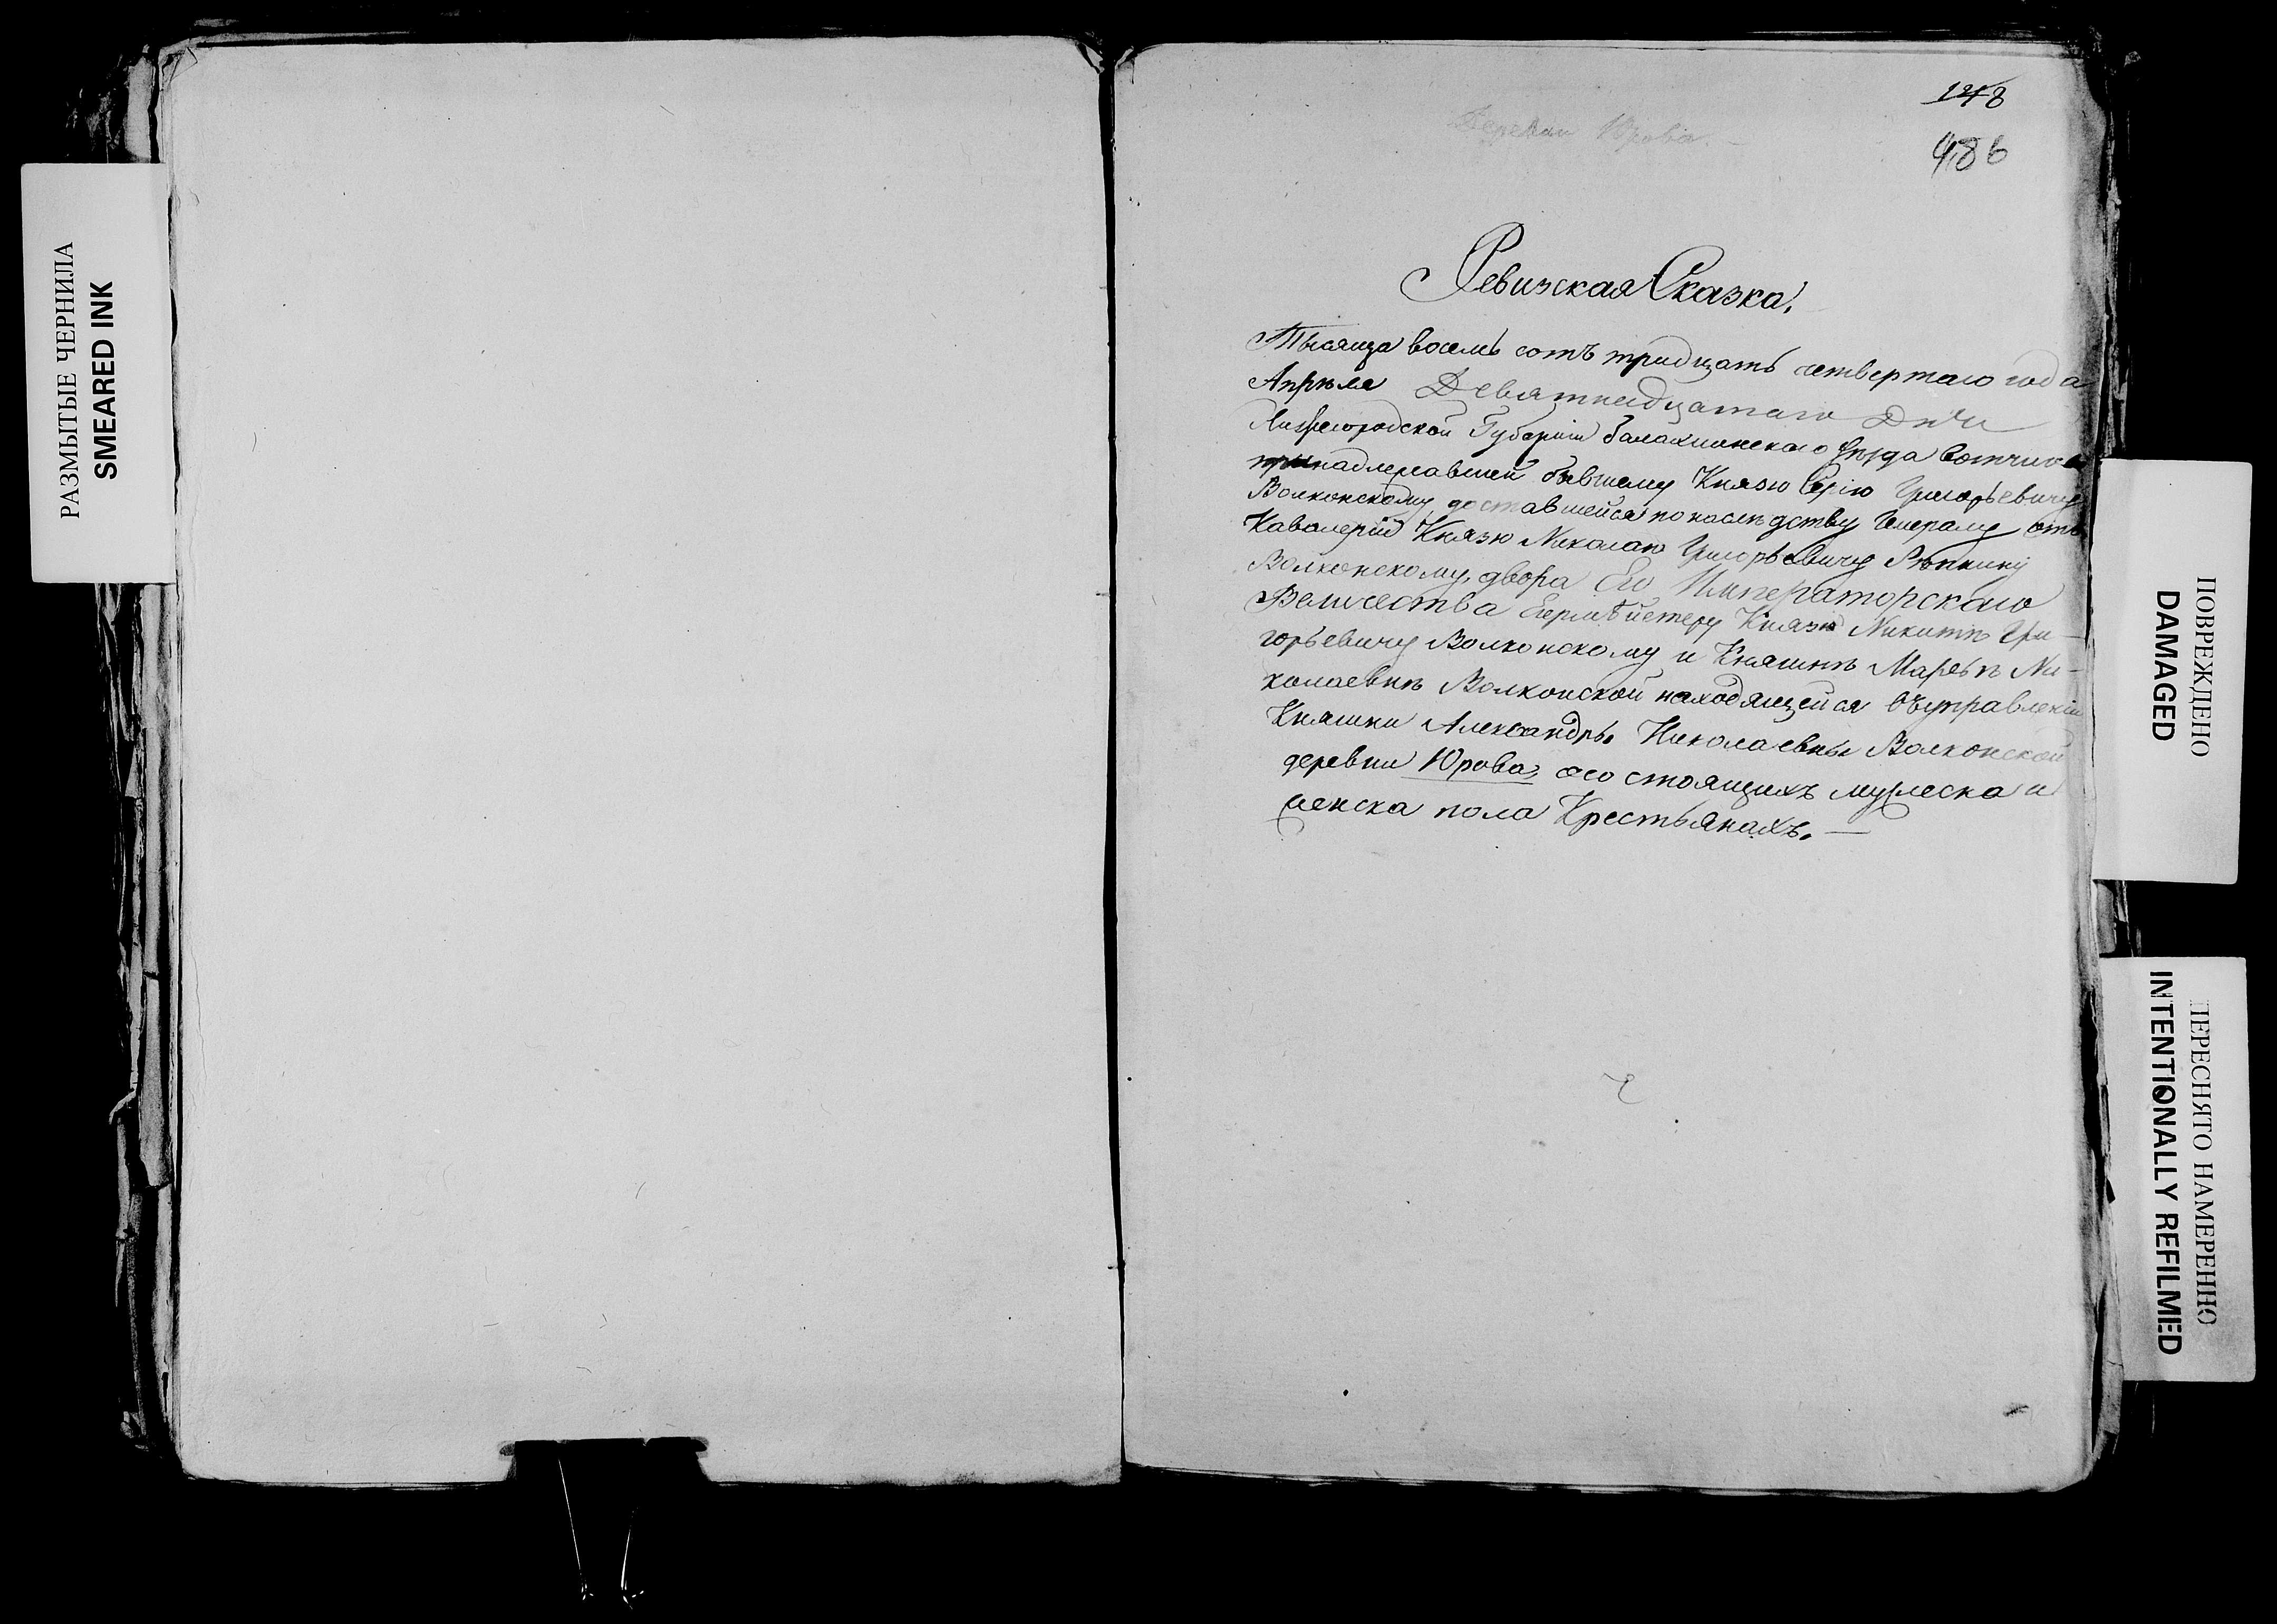 РАЗМЫТЫЕ ЧЕРНИЛА
SMEARED INK
148
486
Деревни Юрова
Ревизская Сказка.
Тысяща восемь сотъ тридцать четвертаго года
Апреля Девятнадцатаго Дня
Нижегородской Губерніи Балахнинскаго уезда вотчины
принадлежавшей бывшему Князю Сергію Григорьевичу
Волконскому доставшейся по наследству Генералу отъ
Кавалеріи Князю Николаю Григорьевичу Репнину
Волконскому, двора Его Императорскаго
Величества Егермейстеру Князю Никитѣ Гри-
горьевичу Волконскому и Княжнѣ Марьѣ Ни-
колаевнѣ Волконской находящейся въ управленіи
Княжни Александры Николаевны Волконской
деревни Юрова, о состоящихъ мужеска и
женска пола Крестьянахъ.
ПОВРЕЖДЕНО
DAMAGED
ПЕРЕСНЯТО НАМЕРЕННО
INTENTIONALLY REFILMED